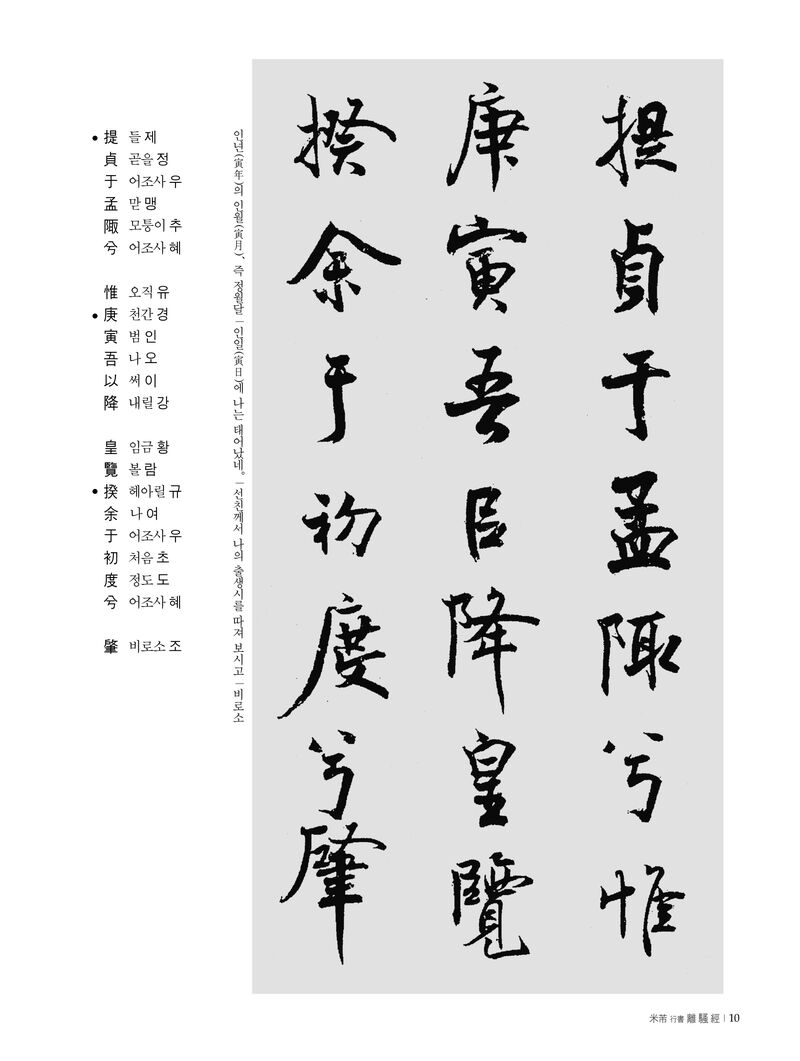 提貞于孟陬兮惟
庚寅吾以降皇覽
揆余于初度兮肇
인년(寅年)의 인월(寅月), 즉 정월달 | 인일(寅日)에 나는 태어났네。 | 선친께서 나의 출생시를 따져 보시고 | 비로소
• 提 들 제
貞 곧을 정
于 어조사 우
孟 맏 맹
陬 모퉁이 추
兮 어조사 혜
惟 오직 유
• 庚 천간 경
寅 범 인
吾 나 오
以 써 이
降 내릴 강
皇 임금 황
覽 볼 람
• 揆 헤아릴 규
余 나 여
于 어조사 우
初 처음 초
度 정도 도
兮 어조사 혜
肇 비로소 조
米芾 行書 離騷經 | 10